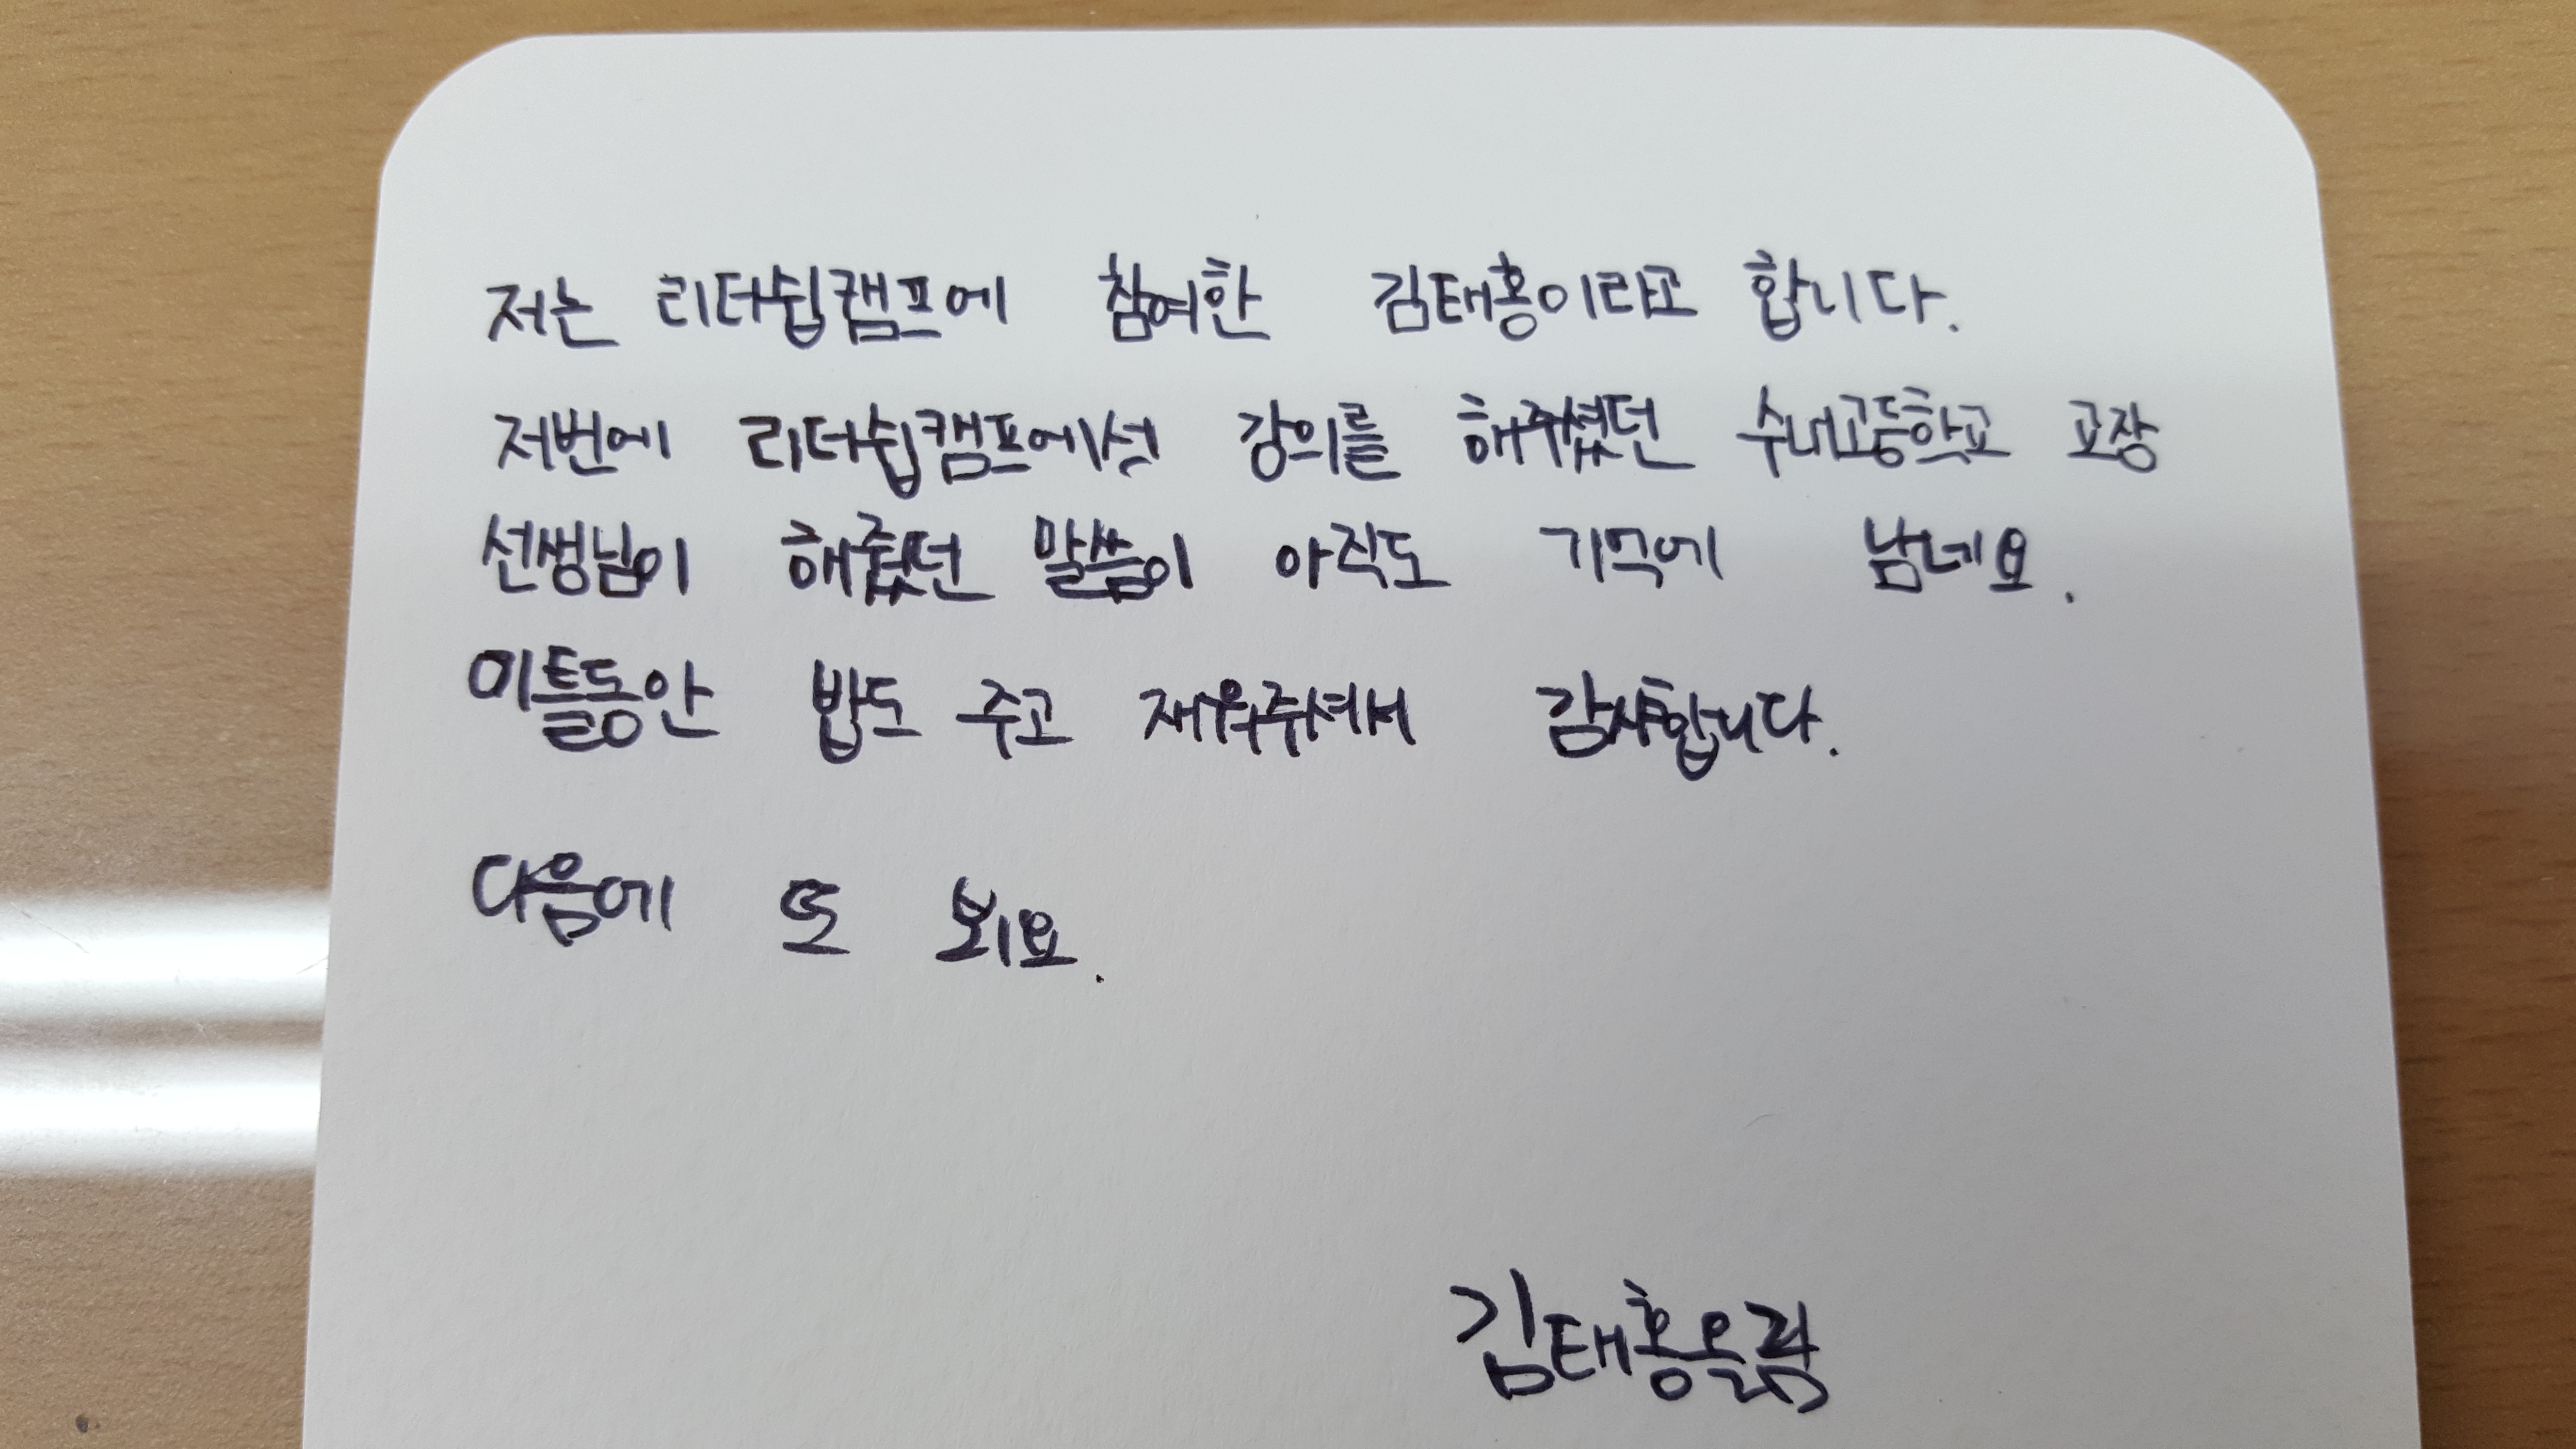 저는 리더쉽캠프에 참여한 김태홍이라고 합니다.
저번에 리더쉽캠프에선 강의를 해주셨던 수내고등학교 교장
선생님이 해줬던 말씀이 아직도 기억에 남네요.
이틀동안 밥도 주고 재워주셔서 감사합니다.
다음에 또 뵈요.
김태홍올림